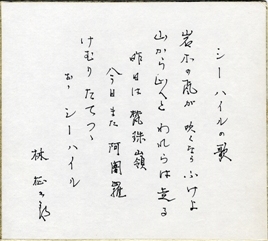 シーハイルの歌
岩木の颪が 吹くなら ふけよ
山から山へと われらは走る
昨日は 梵珠嶺
今日また 阿闍羅
けむりたてつゝ
おゝ シーハイル
林 柾次郎